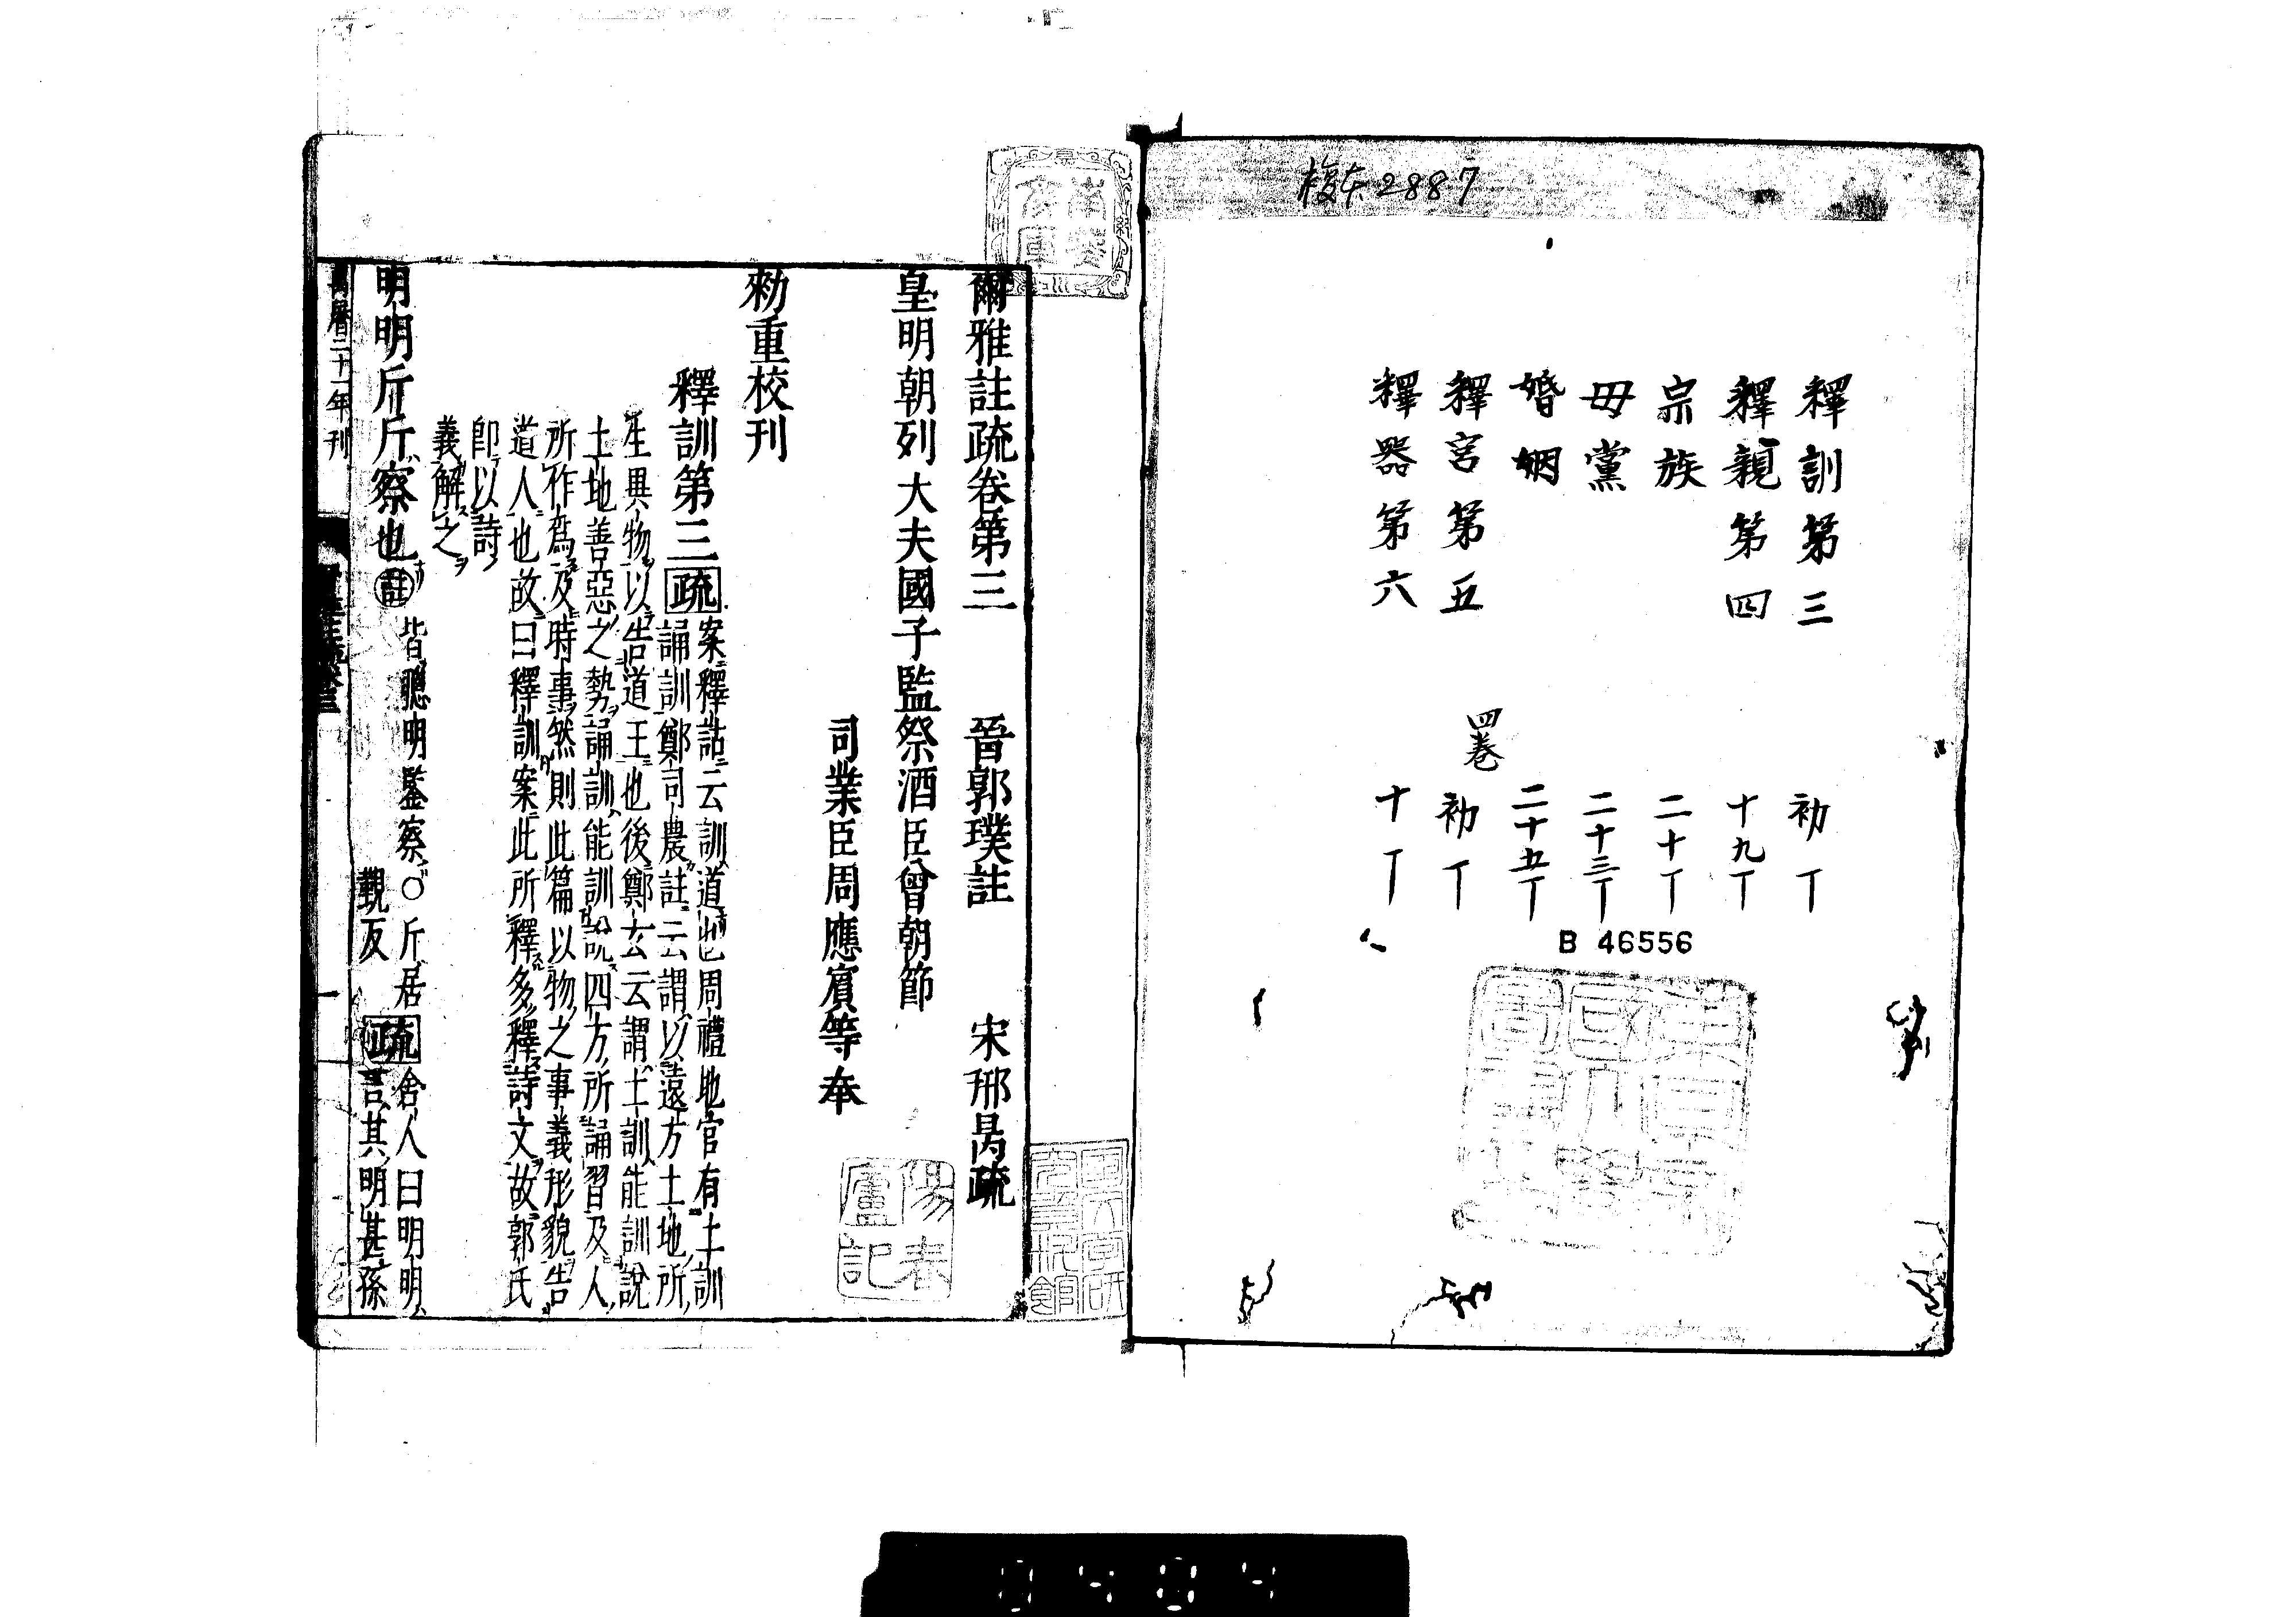 複本2887
釋訓第三 初丁
釋親第四 十九丁
宗族 二十丁
毋黨 二十三丁
婚姻 二十五丁
釋宮第五 四卷 初丁
釋器第六 十丁
B 46556
爾雅註疏卷第三 晉郭璞註 宋邢昺疏
皇明朝列大夫國子監祭酒臣曾朝節
司業臣周應賔等奉
勑重校刊
釋訓第三 疏 案釋詁云訓道也周禮地官有土訓
誦訓鄭司農註云謂以遠方土地所
生異物以告道王也後鄭玄云謂土訓能訓說
土地善惡之勢誦訓能訓說四方所誦習及人
所作爲及時事然則此篇以物之事義形貌告
道人也故曰釋訓案此所釋多釋詩文故郭氏
卽以詩
義解之
明明斤斤察也 註 皆聰明鑒察○斤居
覲反 疏 舍人曰明明
言其明甚孫
萬曆二十一年刊
陽春廬記